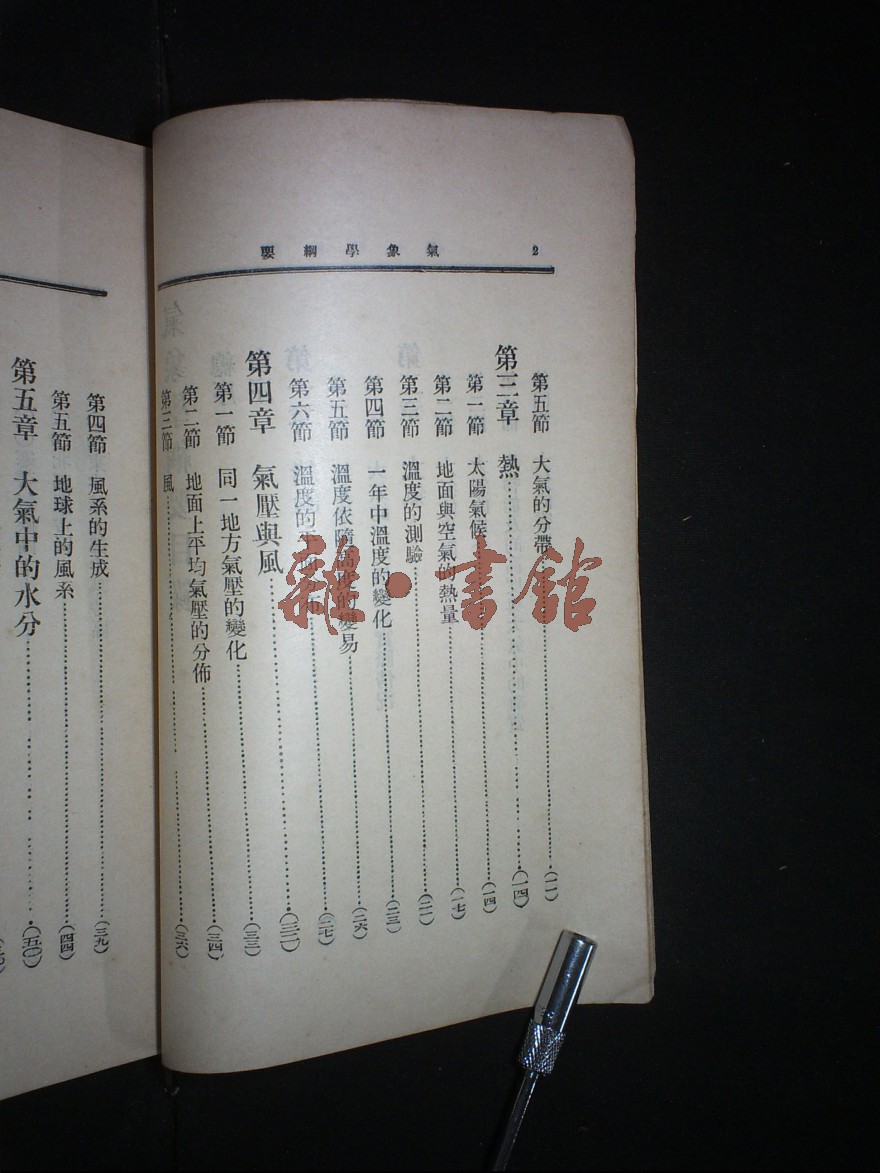 2 氣象學綱要
第五節 大氣的分帶……(一一)
第三章 熱……(一四)
第一節 太陽氣候……(一四)
第二節 地面與空氣的熱量……(一七)
第三節 溫度的測驗……(二一)
第四節 一年中溫度的變化……(二三)
第五節 溫度依隨高度的變易……(二六)
第六節 溫度的……(二七)
第四章 氣壓與風……(三二)
第一節 同一地方氣壓的變化……(三三)
第二節 地面上平均氣壓的分佈……(三四)
第三節 風……(三六)
第四節 風系的生成……(三九)
第五節 地球上的風系……(四四)
第五章 大氣中的水分……(五〇)
雜·書館